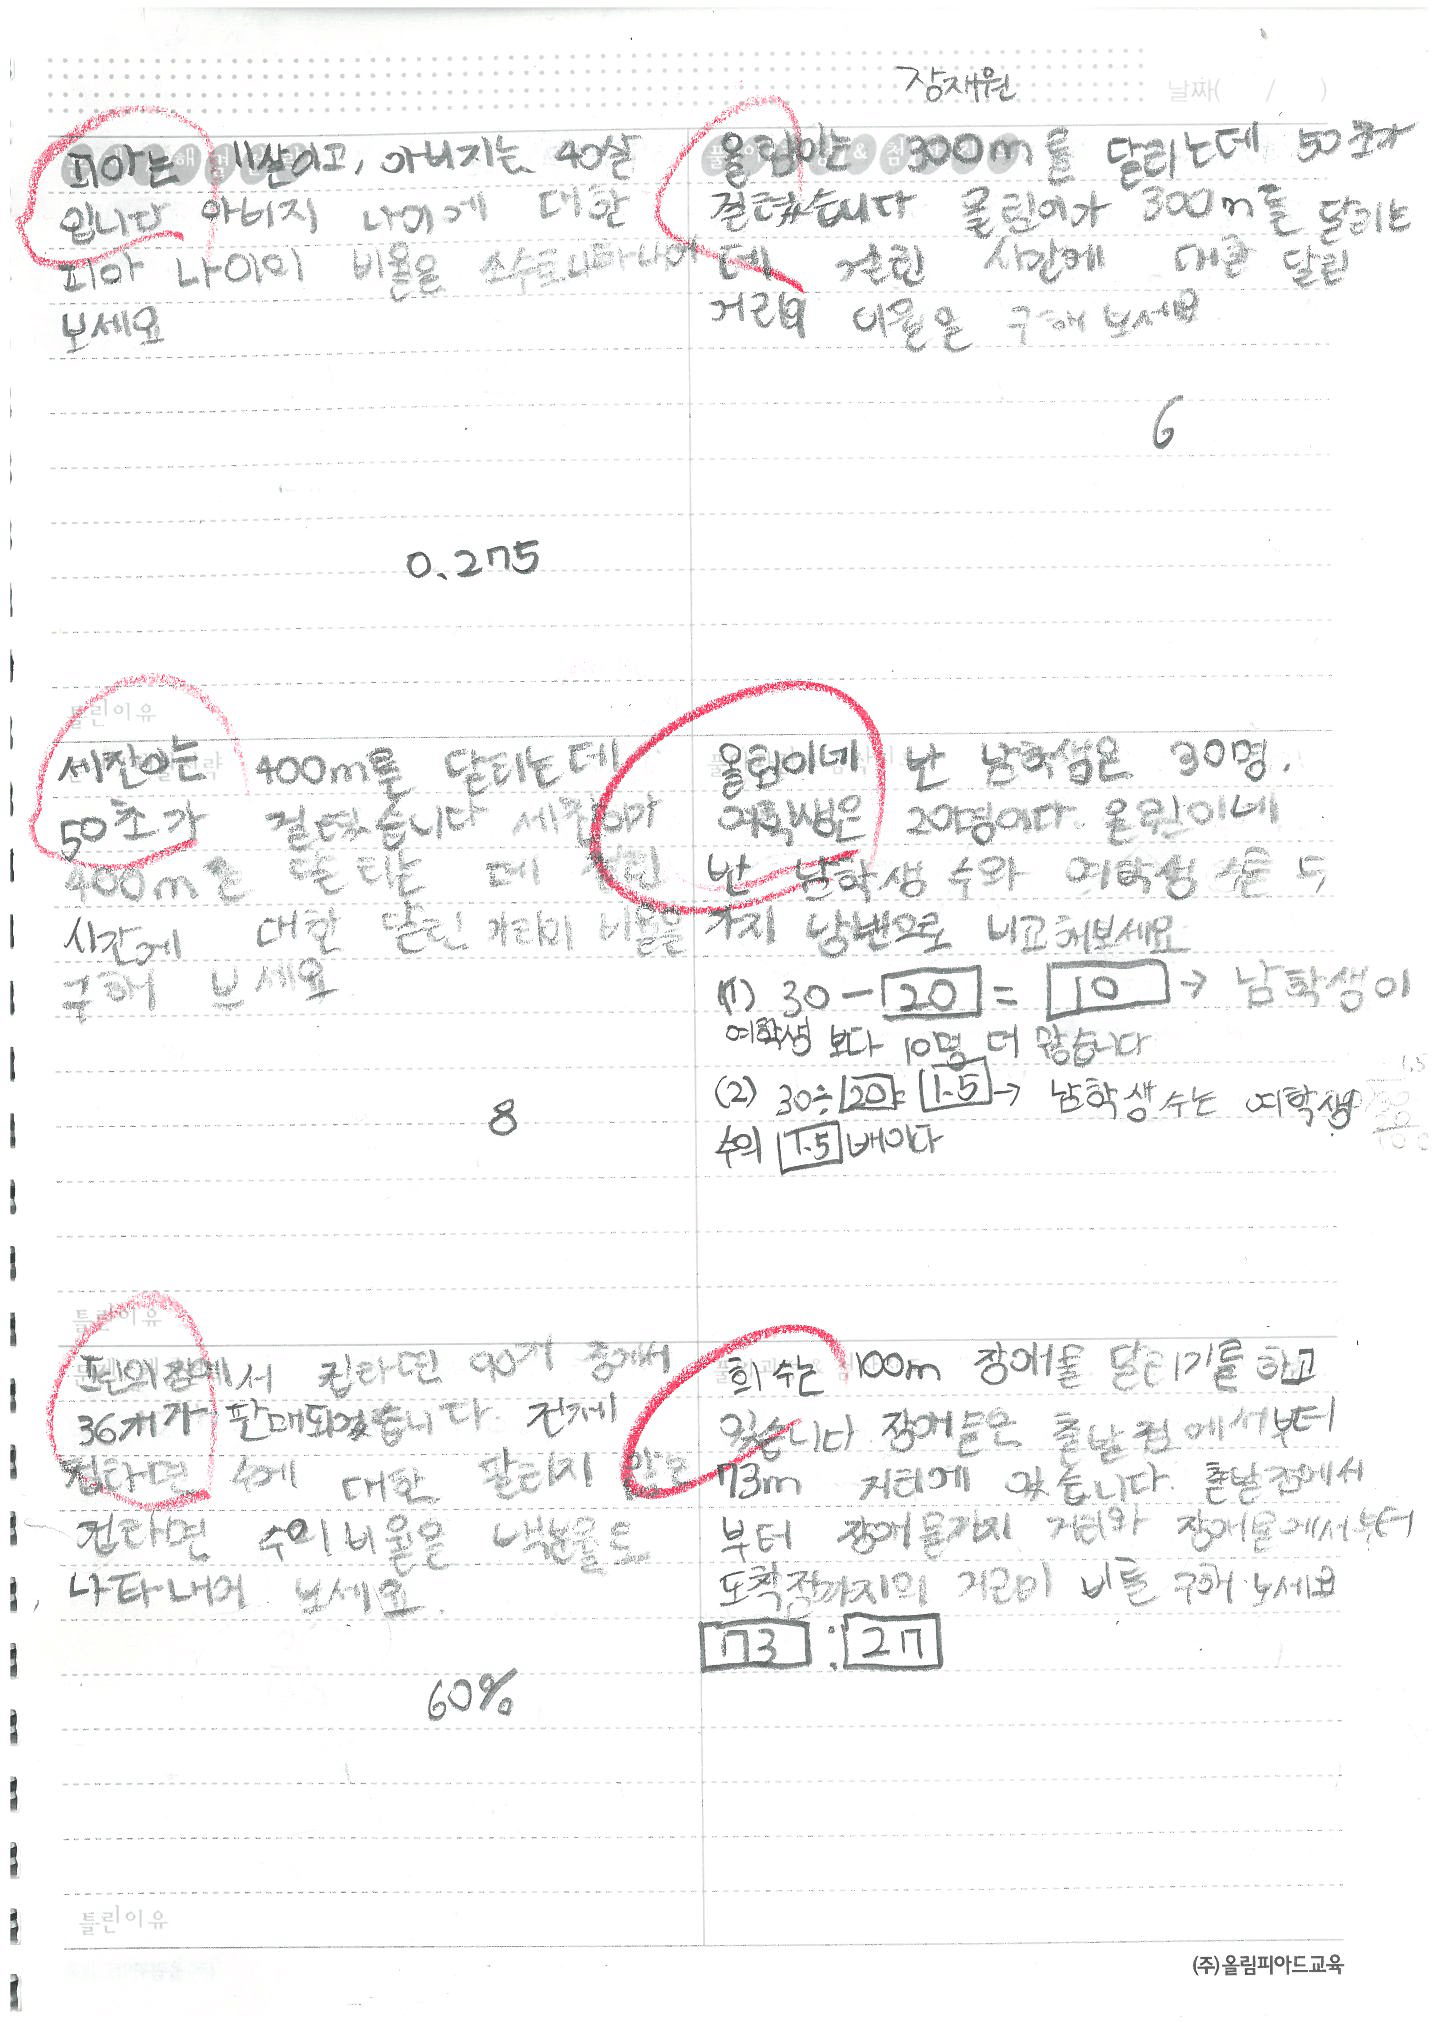 장재원
날짜( / )
피아는 11살이고, 아버지는 40살
입니다 아버지 나이에 대한
피아 나이의 비율을 소수로 나타내어
보세요
0.275
틀린이유
올림이는 300m를 달리는데 50초가
걸렸습니다 올림이가 300m를 달리는
데 걸린 시간에 대한 달린
거리의 비율을 구해 보세요
6
세진이는 400m를 달리는데
50초가 걸렸습니다 세진이가
400m를 달리는 데 걸린
시간에 대한 달린 거리의 비율을
구해 보세요
8
틀린이유
올림이네 반 남학생은 30명,
여학생은 20명이다. 올림이네
반 남학생 수와 여학생 수를 두
가지 방법으로 비교해보세요
(1) 30 - 20 = 10 → 남학생이
여학생 보다 10명 더 많습니다
(2) 30÷20= 1.5 → 남학생 수는 여학생
수의 1.5 배이다
1.5
편의점에서 컵라면 90개 중에서
36개가 판매되었습니다. 전체
컵라면 수에 대한 팔리지 않은
컵라면 수의 비율을 백분율로
나타내어 보세요.
60%
틀린이유
희수는 100m 장애물 달리기를 하고
있습니다 장애물은 출발점에서부터
73m 거리에 있습니다. 출발점에서
부터 장애물까지 거리와 장애물에서부터
도착점까지의 거리의 비를 구해 보세요
73 : 27
(주)올림피아드교육